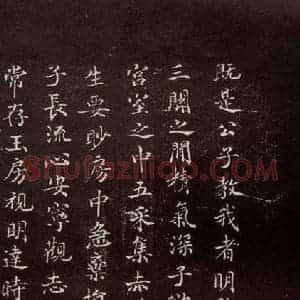 既是公子教我者明
三關之間精氣深子
宮室之中五采集赤
生要眇房中急棄
子長流心安寧觀志
常存玉房視明達時
Shufaziliao.com